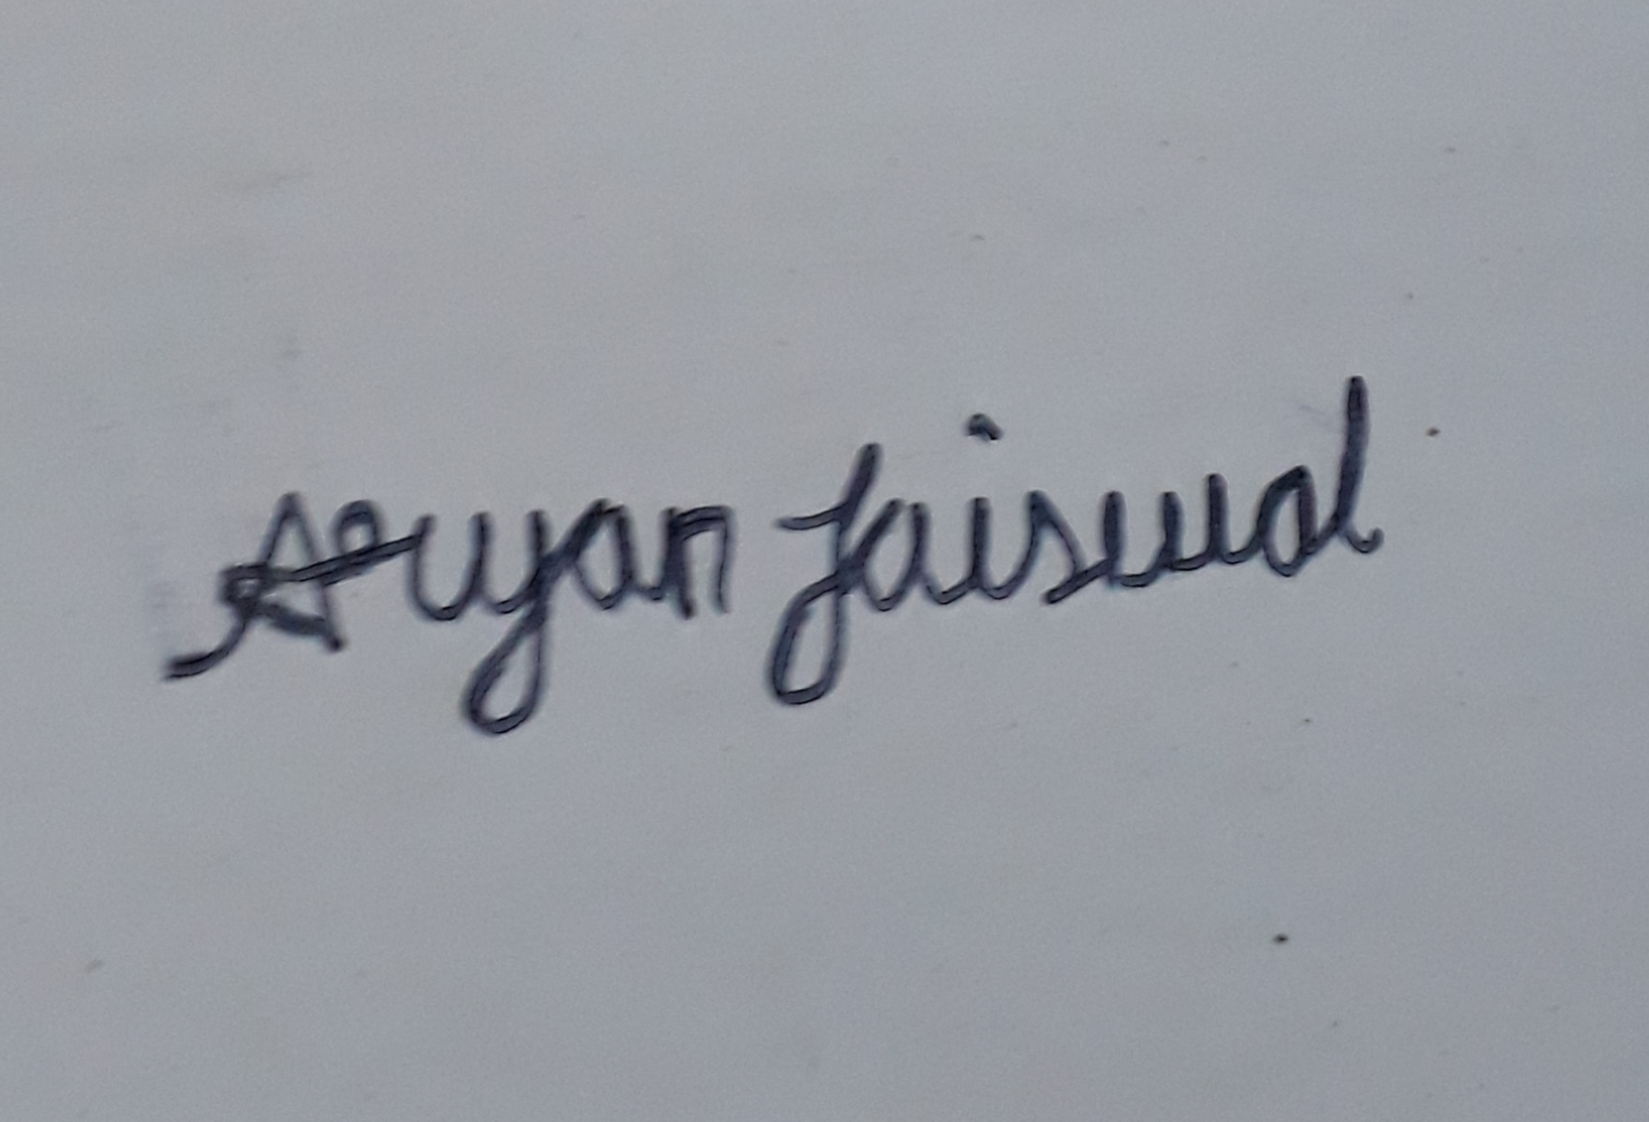 Aryan Jaiswal